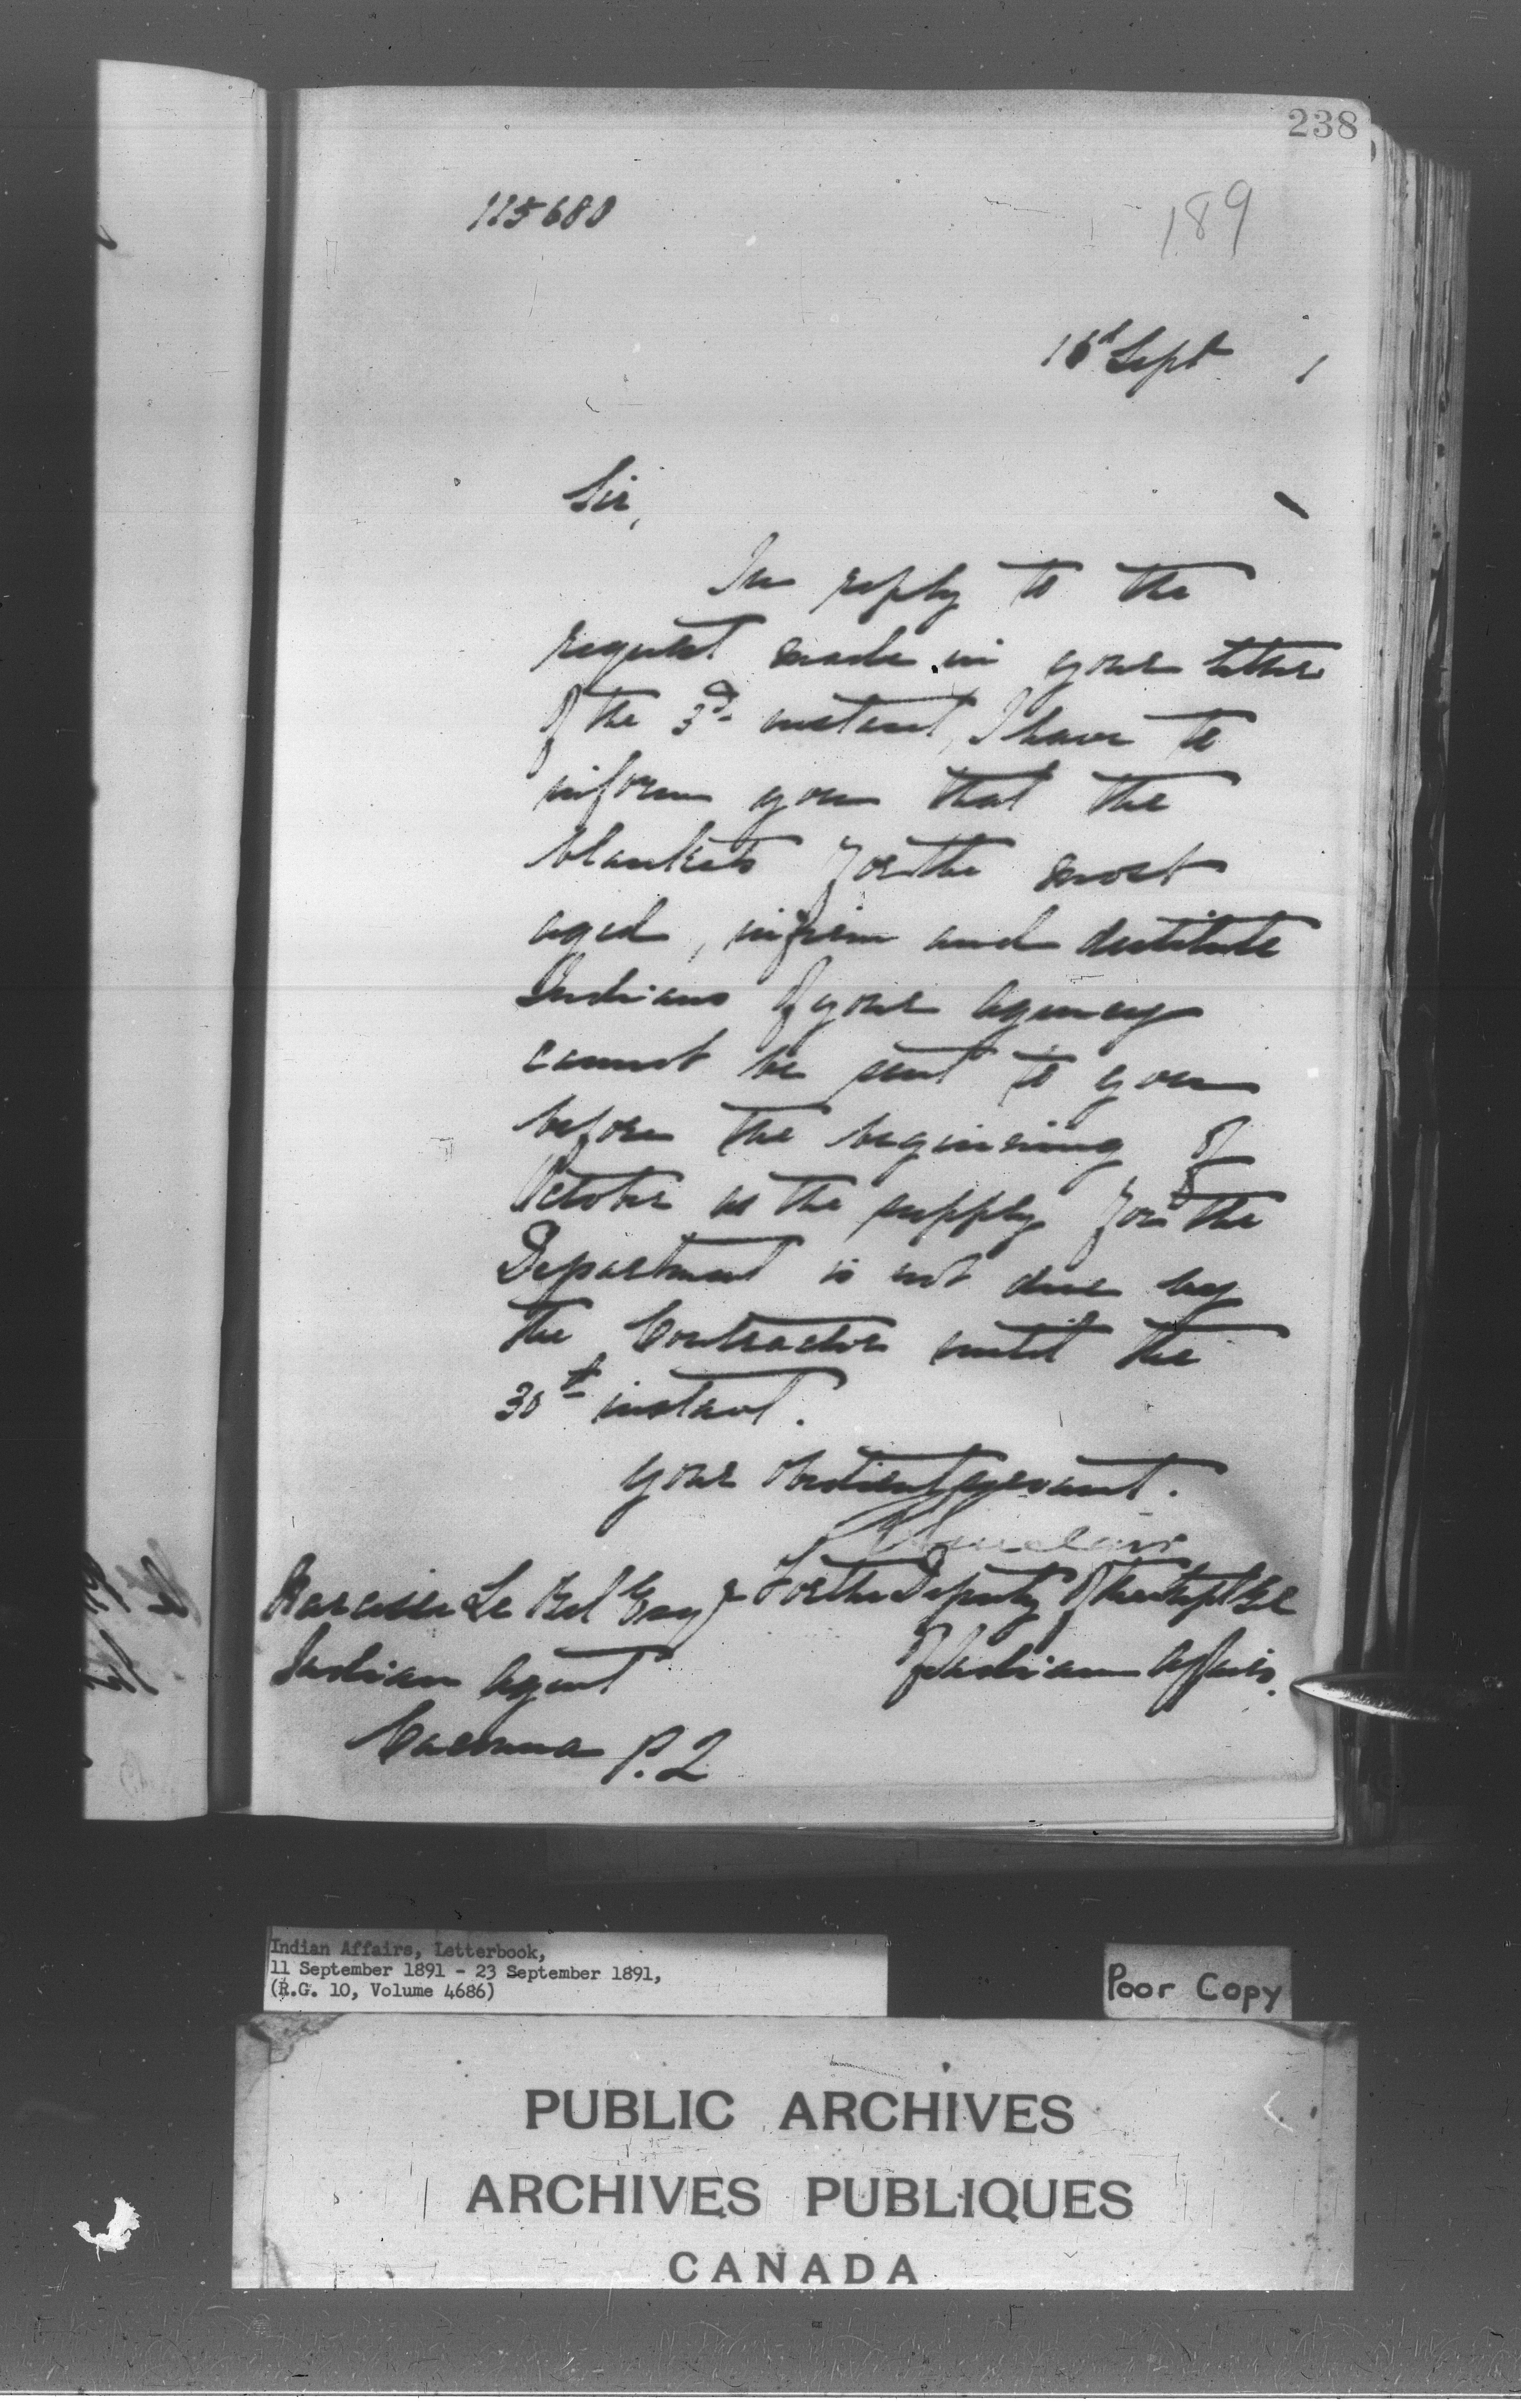 238
115680
189
16th Sept 1
Sir,
In reply to the
request made in your letter
of the 3d instant, I have to
inform you that the
blankets for the most
aged, infirm and destitute
Indians of your Agency
cannot be sent to you
before the beginning of
October as the supply for the
Department is not due by
the Contractor until the
30th instant.
your obedient servant.
Sinclair
Narcisse Le Bel Esqr For the Deputy of the Supt Gl
Indian Agent of Indian Affairs.
Cacouna P.Q
Indian Affairs, Letterbook,
11 September 1891 - 23 September 1891,
(R.G. 10, Volume 4686)
Poor Copy
PUBLIC ARCHIVES
ARCHIVES PUBLIQUES
CANADA